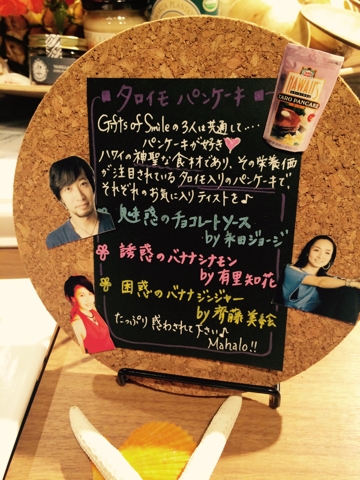 タロイモ パンケーキ
Gifts of Smileの3人は共通して…
パンケーキが好き♥
ハワイの神聖な食材であり、その栄養価
が注目されているタロイモ入りのパンケーキで
それぞれのお気に入りテイストを♪
魅惑のチョコレートソース
by 永田ジョージ
誘惑のバナナシナモン
by 有里知花
困惑のバナナジンジャー
by 斉藤美絵
たっぷり惑わされて下さい♪
Mahalo!!
TARO PANCAKE